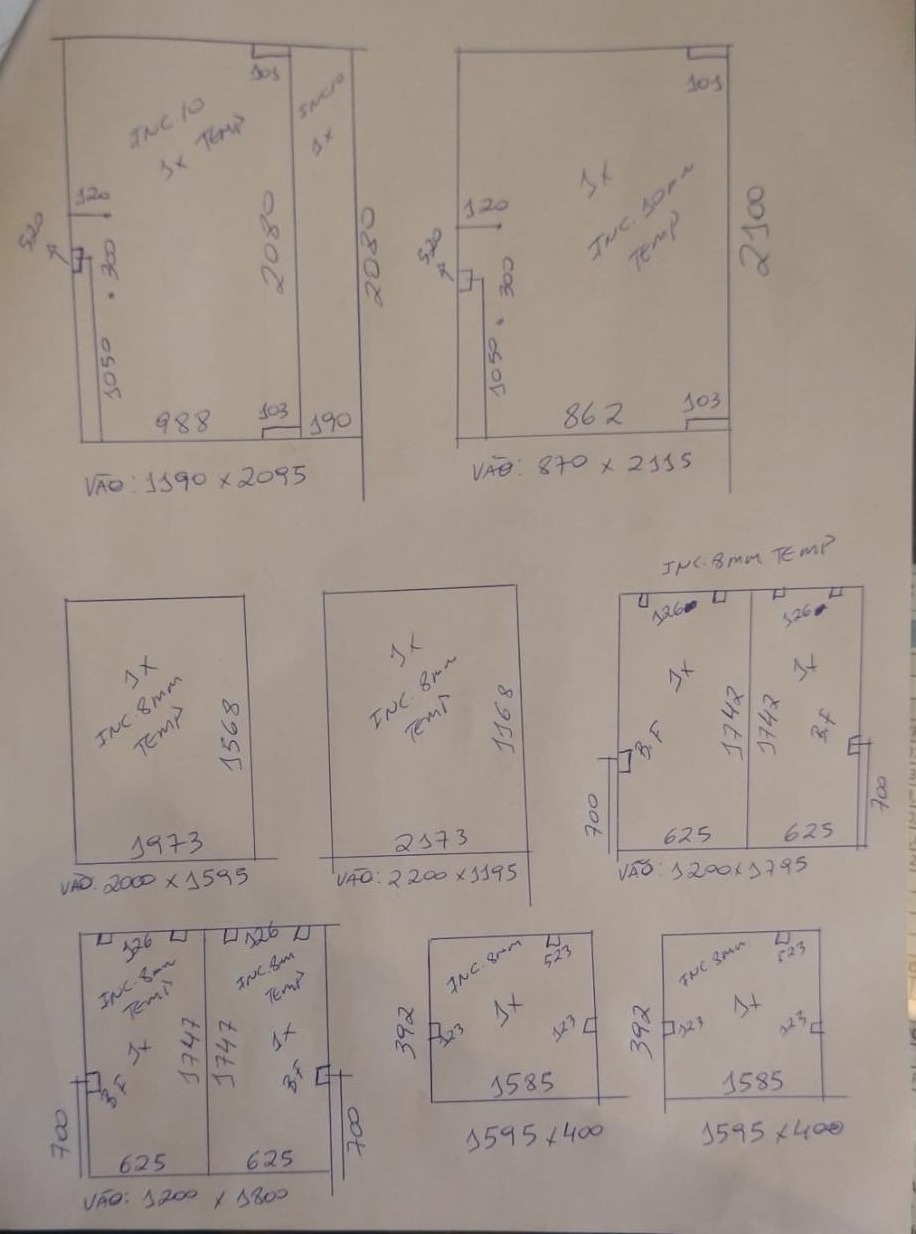 101
INC10
1x TEMP
INC10
1x
120
520
300
1050
2080
2080
988
103
190
VÃO: 1190 x 2095
101
1x
INC. 10mm
TEMP
120
520
300
1050
2100
862
103
VÃO: 870 x 2115
1x
INC. 8mm
TEMP
1568
1973
VÃO: 2000 x 1595
1x
INC. 8mm
TEMP
1168
2173
VÃO: 2200 x 1195
INC. 8mm TEMP
126
126
1x
1x
1742
1742
B.F
B.F
700
700
625
625
VÃO: 1200x1795
126
126
INC. 8mm
TEMP
INC. 8m
TEMP
1x
1x
1747
1747
B.F
B.F
700
700
625
625
VÃO: 1200 x 1800
INC. 8mm
523
1x
392
123
123
1585
1595 x 400
INC 8mm
523
1x
392
123
123
1585
1595 x 400